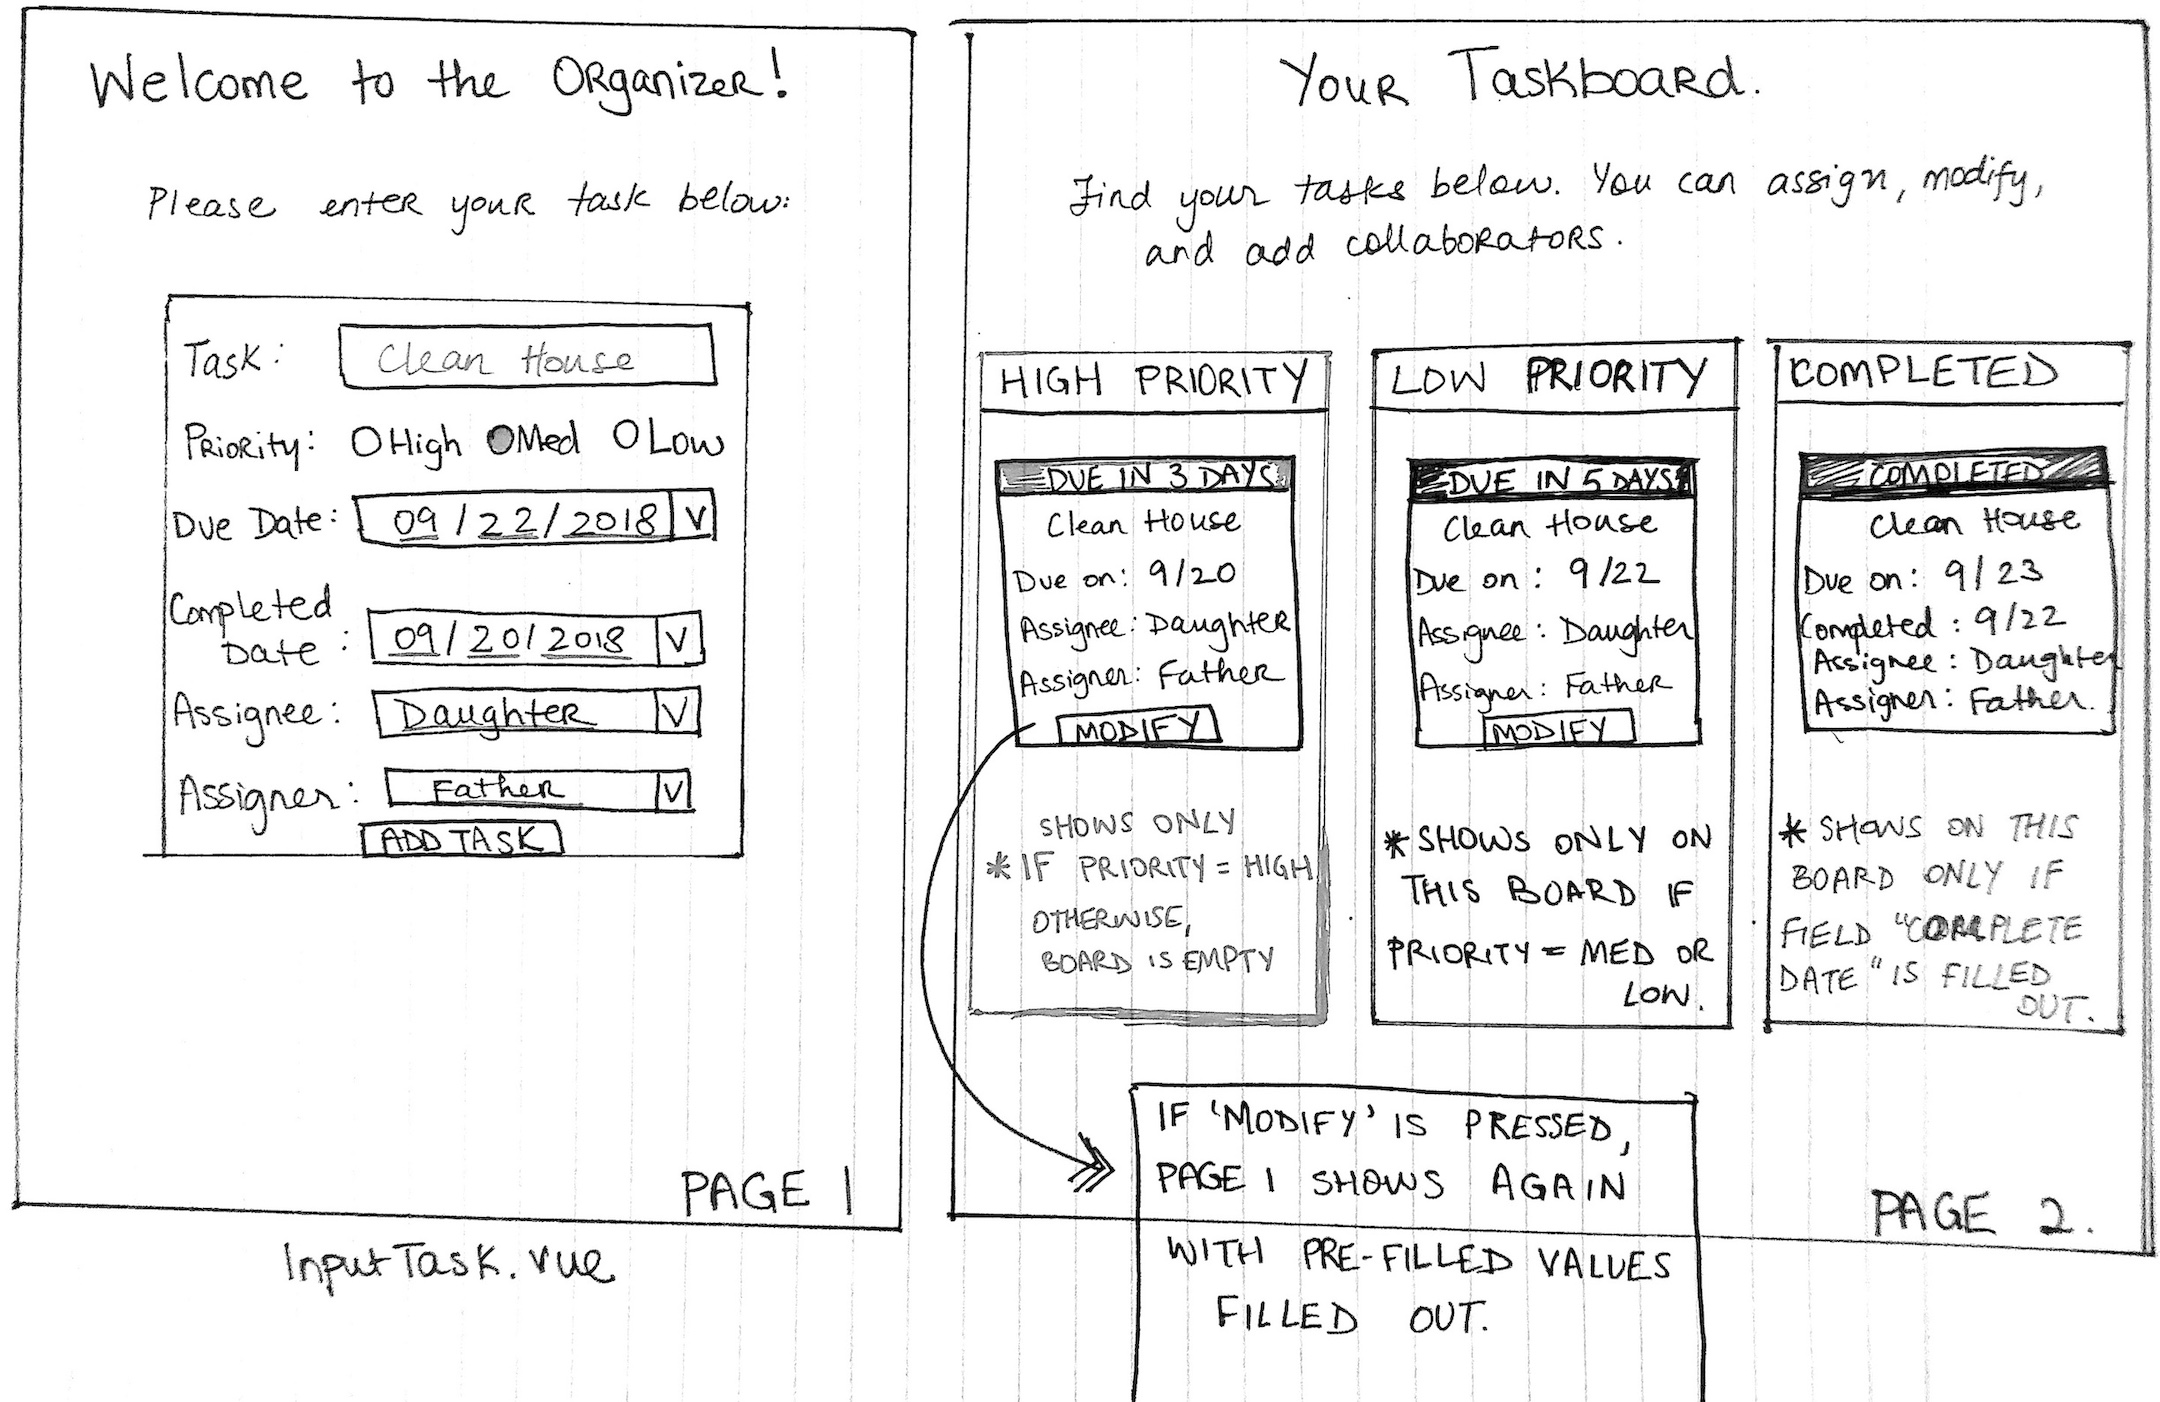 Welcome to the Organizer!
Please enter your task below:
Task: Clean House
Priority: High Med Low
Due Date: 09/22/2018 V
Completed
Date : 09/20/2018 V
Assignee: Daughter V
Assigner: Father V
ADD TASK
PAGE 1
InputTask.vue
Your Taskboard.
Find your tasks below. You can assign, modify,
and add collaborators.
HIGH PRIORITY
DUE IN 3 DAYS
Clean House
Due on: 9/20
Assignee: Daughter
Assigner: Father
MODIFY
SHOWS ONLY
* IF PRIORITY = HIGH
OTHERWISE,
BOARD IS EMPTY
LOW PRIORITY
DUE IN 5 DAYS
Clean House
Due on: 9/22
Assignee: Daughter
Assigner: Father
MODIFY
* SHOWS ONLY ON
THIS BOARD IF
PRIORITY = MED OR
LOW.
COMPLETED
COMPLETED
Clean House
Due on: 9/23
Completed: 9/22
Assignee: Daughter
Assigner: Father.
* SHOWS ON THIS
BOARD ONLY IF
FIELD "COMPLETE
DATE" IS FILLED
OUT.
IF 'MODIFY' IS PRESSED,
PAGE 1 SHOWS AGAIN
WITH PRE-FILLED VALUES
FILLED OUT.
PAGE 2.